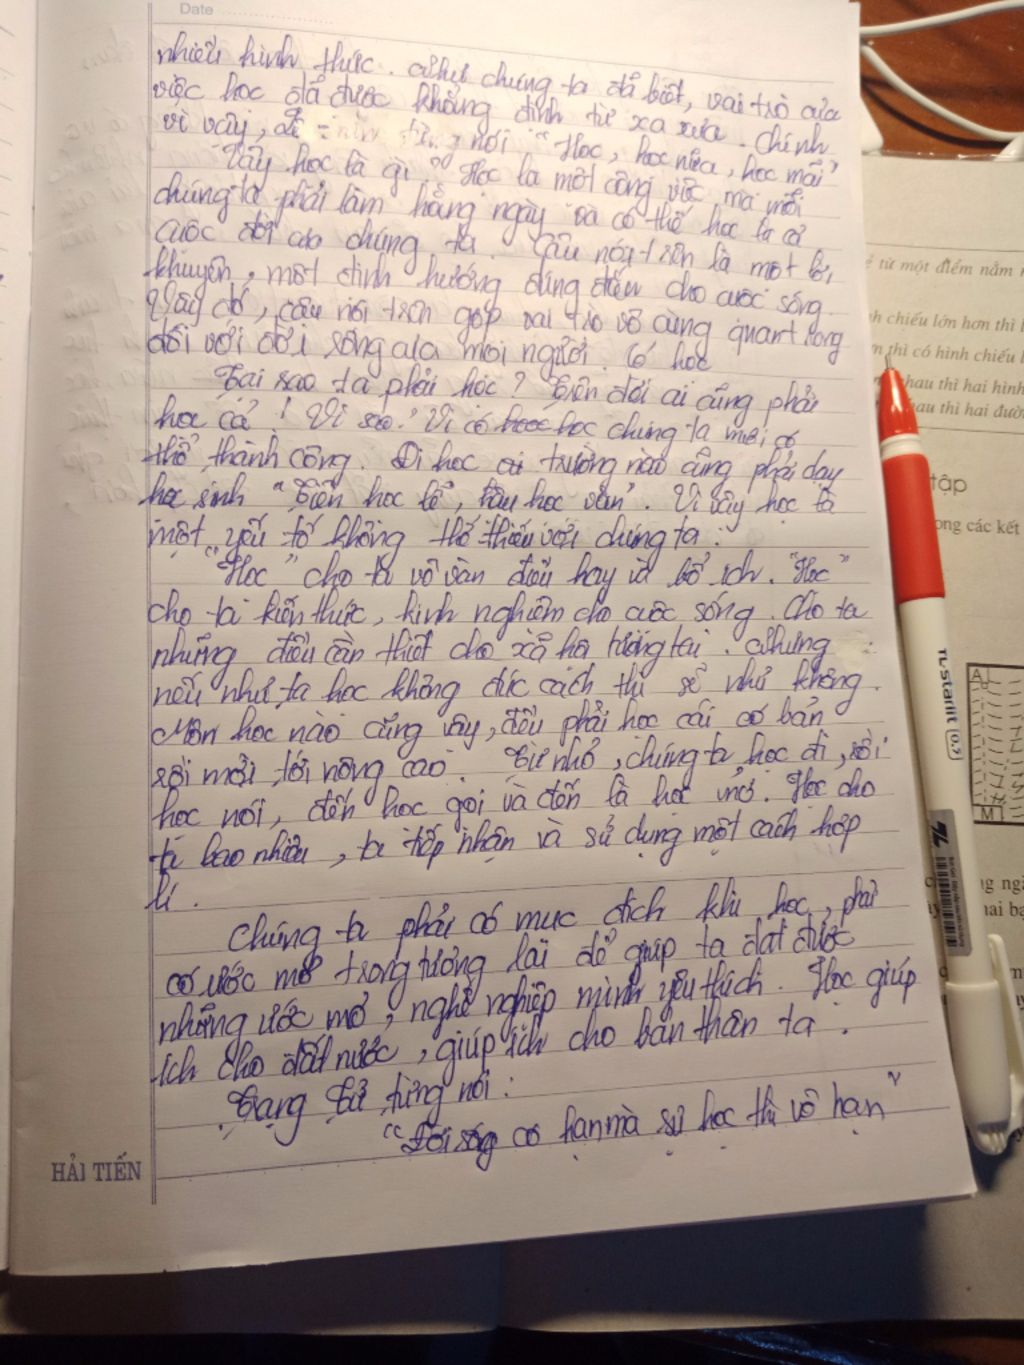 Date
nhiều hình thức. Như chúng ta đã biết, vai trò của
việc học đã được khẳng định từ xa xưa. Chính
vì vậy, nói "Học, học nữa, học mãi"
Vậy học là gì? Học là một công việc mà mỗi
chúng ta phải làm hằng ngày và có thể học là cả
cuộc đời của chúng ta. Câu nói trên là một lời
khuyên, một định hướng đúng đắn cho cuộc sống.
Vậy đó, câu nói trên góp vai trò vô cùng quan trong
đối với đời sống của mọi người. Có học
Tại sao ta phải học? Trên đời ai cũng phải
học cả! Vì sao? Vì có học chúng ta mới có
thể thành công. Đi học trường nào cũng phải dạy
học sinh "Tiên học lễ, hậu học văn". Vì vậy học là
một yếu tố không thể thiếu với chúng ta.
"Học" cho ta vô vàn điều hay và bổ ích. "Học"
cho ta kiến thức, kinh nghiệm cho cuộc sống. Cho ta
những điều cần thiết cho xã hội tương lai. Nhưng
nếu như ta học không đúc cách thì sẽ như không.
Môn học nào cũng vậy, đều phải học cái cơ bản
rồi mới tới nâng cao. Từ nhỏ, chúng ta học đi, rồi
học nói, đến học gọi và đến là học mở. Học cho
ta bao nhiêu, ta tiếp nhận và sử dụng một cách hợp
lí.
Chúng ta phải có mục đích khi học, phải
có ước mơ trong tương lai để giúp ta đạt được
những ước mơ, nghề nghiệp mình yêu thích. Học giúp
ích cho đất nước, giúp ích cho bản thân ta.
Trang Tử từng nói:
"Đời sống có hạn mà sự học thì vô hạn"
HẢI TIẾN
từ một điểm nằm
chiếu lớn hơn thì
thì có hình chiếu
nhau thì hai hình
nhau thì hai đườ
tập
ong các kết
TL Starlit (0.7)
TL
A
M